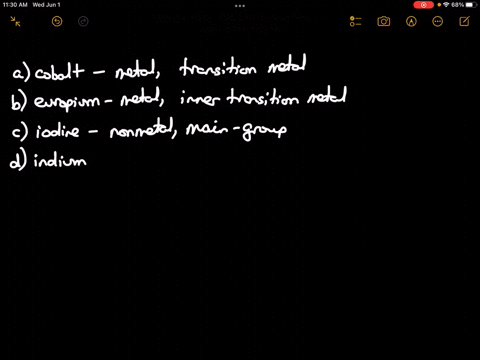 11:30 AM Wed Jun 1
68%
a) cobalt – metal, transition metal
b) europium – metal, inner transition metal
c) iodine – nonmetal, main-group
d) indium